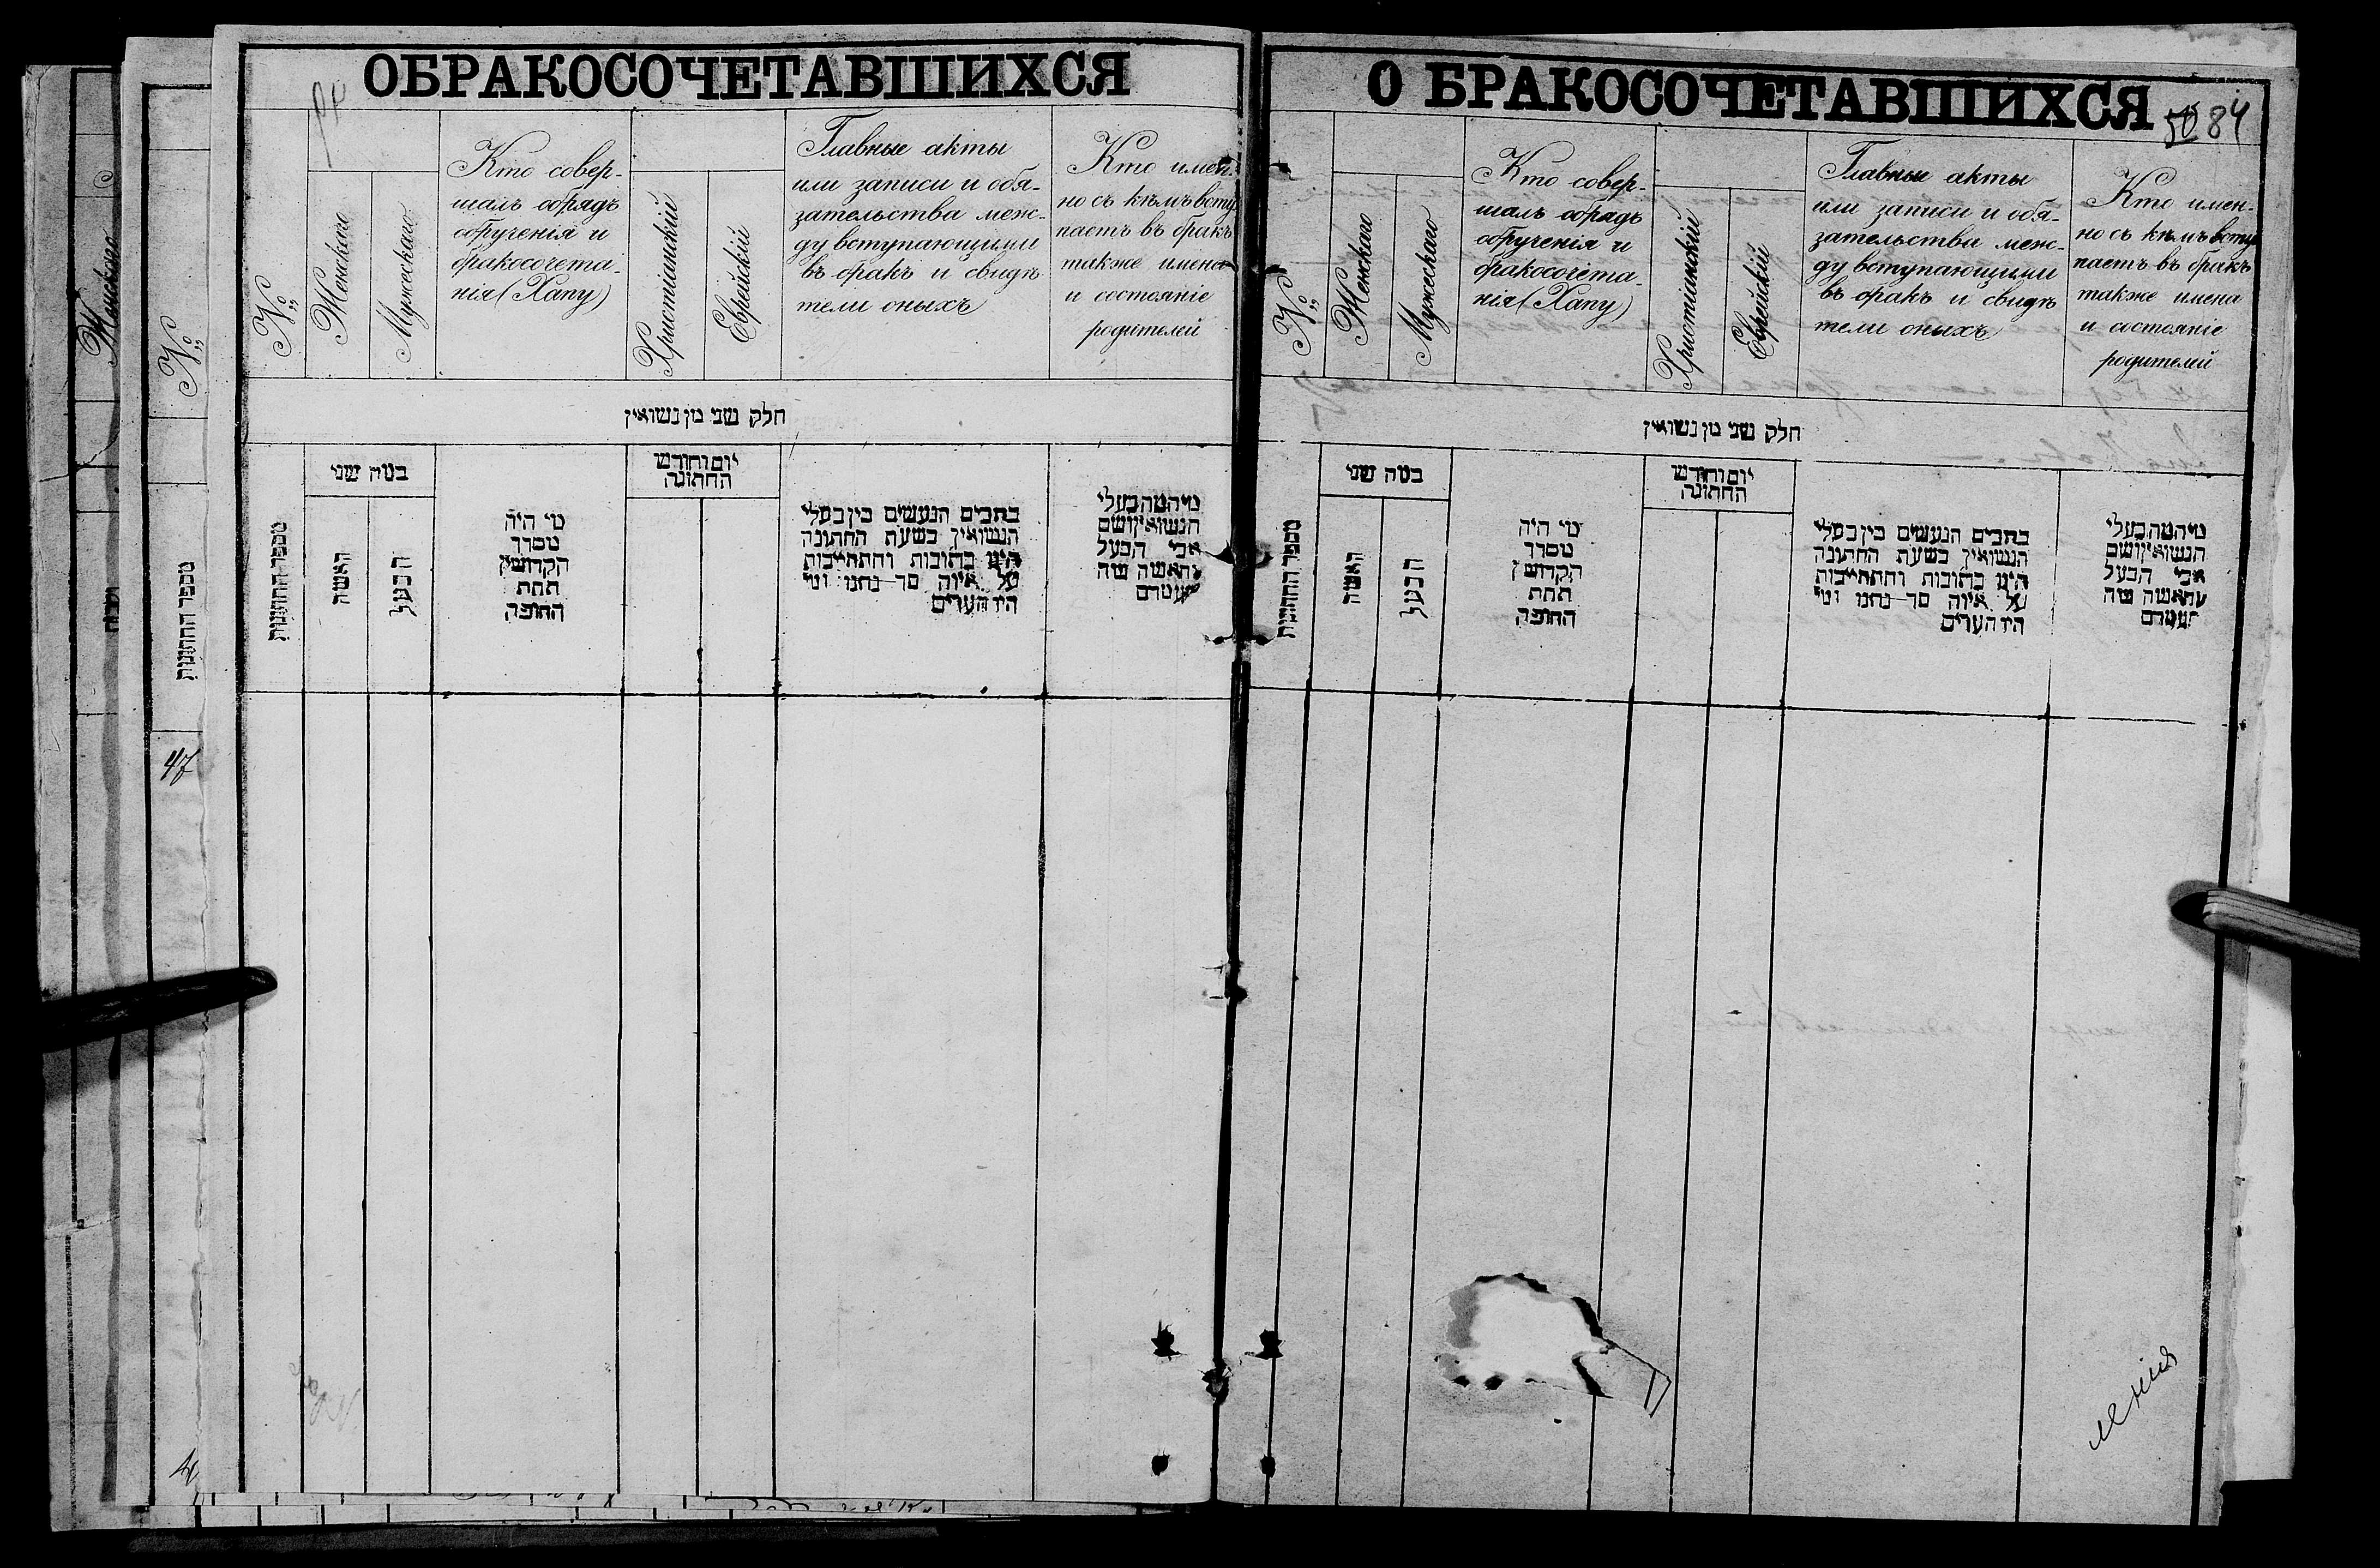 ОБРАКОСОЧЕТАВШИХСЯ
№
Женскаго
Мужескаго
Кто совер-
шалъ обрядъ
обрученія и
бракосочета-
нія (Хапу)
Христіанскій
Еврейскій
Главные акты
или записи и обя-
зательства меж-
ду вступающими
въ бракъ и свидѣ
тели оныхъ
Кто имен-
но съ кѣмъ всту
паетъ въ бракъ
также имена
и состояніе
родителей
חלק שני מן נשואין
מספר החתונות
במה שני
האשה
הבעל
מי היה
מסדר
הקדושין
תחת
החופה
יום וחודש
החתונה
כתבים הנעשים בין בעלי
הנשואין בשעת החתונה
היינו כתובות והתחייבות
על איזה סך נתנו ומי
היו העדים
מי המה בעלי
הנשואין ושם
אבי הבעל
והאשה ומה
מעמדם
О БРАКОСОЧЕТАВШИХСЯ
50 84
№
Женскаго
Мужескаго
Кто совер-
шалъ обрядъ
обрученія и
бракосочета-
нія (Хапу)
Христіанскій
Еврейскій
Главные акты
или записи и обя-
зательства меж-
ду вступающими
въ бракъ и свидѣ
тели оныхъ
Кто имен-
но съ кѣмъ всту
паетъ въ бракъ
также имена
и состояніе
родителей
חלק שני מן נשואין
מספר החתונות
במה שני
האשה
הבעל
מי היה
מסדר
הקדושין
תחת
החופה
יום וחודש
החתונה
כתבים הנעשים בין בעלי
הנשואין בשעת החתונה
היינו כתובות והתחייבות
על איזה סך נתנו ומי
היו העדים
מי המה בעלי
הנשואין ושם
אבי הבעל
והאשה ומה
מעמדם
Женскаго
№
מספר החתונות
47